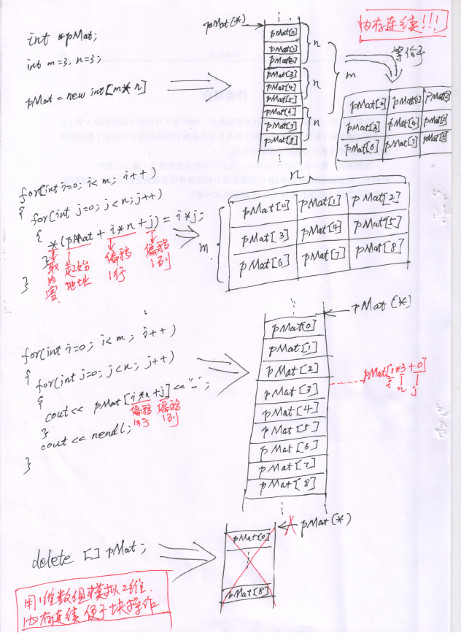 int *pMat;
int m=3, n=3;
pMat = new int[m*n]
pMat(*)
pMat[0]
pMat[1]
pMat[2]
pMat[3]
pMat[4]
pMat[5]
pMat[6]
pMat[7]
pMat[8]
n
n
n
m
内存连续!!!
等价于
pMat[0] pMat[1] pMat[2]
pMat[3] pMat[4] pMat[5]
pMat[6] pMat[7] pMat[8]
for(int i=0; i<m; i++)
{ for(int j=0; j<n; j++)
{ *(pMat + i*n+j) = i*j;
}
}
取内容
起始地址
偏移i行
偏移j列
n
m
pMat[0] pMat[1] pMat[2]
pMat[3] pMat[4] pMat[5]
pMat[6] pMat[7] pMat[8]
for(int i=0; i<m; i++)
{ for(int j=0; j<n; j++)
{
cout << pMat[i*n+j] << " ";
}
偏移i行
偏移j列
cout << endl;
}
pMat(*)
pMat[0]
pMat[1]
pMat[2]
pMat[3]
pMat[4]
pMat[5]
pMat[6]
pMat[7]
pMat[8]
pMat[1*3+0]
i n j
delete [] pMat;
pMat(*)
pMat[0]
pMat[8]
用1维数组模拟2维.
内存连续便于块操作